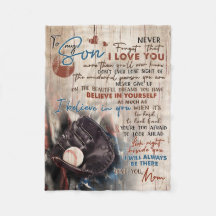 To my
Son
NEVER
Forget that
I LOVE YOU
more than you'll ever know
DON'T EVER LOSE SIGHT OF
THE WONDERFUL PERSON YOU ARE
NEVER GIVE UP
ON THE BEAUTIFUL DREAMS YOU HAVE
BELIEVE IN YOURSELF
AS MUCH AS
I believe in you WHEN IT'S
HARD TO
look back
YOU'RE TOO AFRAID
TO LOOK AHEAD
Look right
beside you
I WILL ALWAYS
BE THERE
LOVE YOU,
Mom